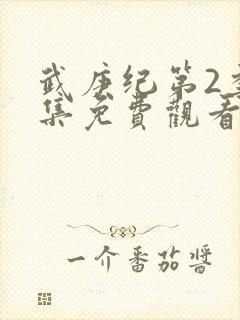 武庚纪第2季
集免費觀看
一介番茄醬